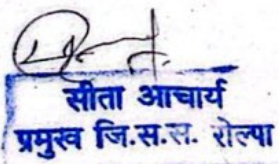 सीता आचार्य
प्रमुख जि.स.स. रोल्पा